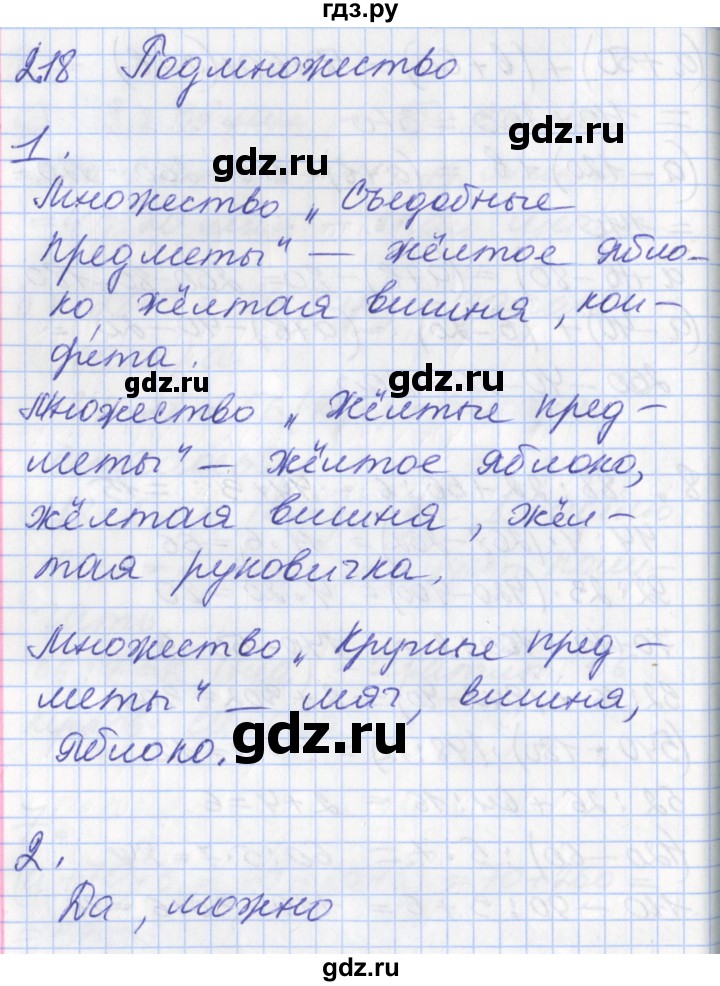 гдз.ру
2.18 Подмножество
gdz.ru
1.
Множество „Съедобные
предметы" — жёлтое ябло-
ко жёлтая вишня, кон-
фета.
gdz.ru gdz.ru
Множество „Жёлтые пред-
меты" — жёлтое яблоко,
жёлтая вишня, жёл-
тая руковичка.
gdz.ru
Множество „Круглые пред-
меты" — мяч, вишня,
яблоко.
gdz.ru
2.
Да, можно
gdz.ru